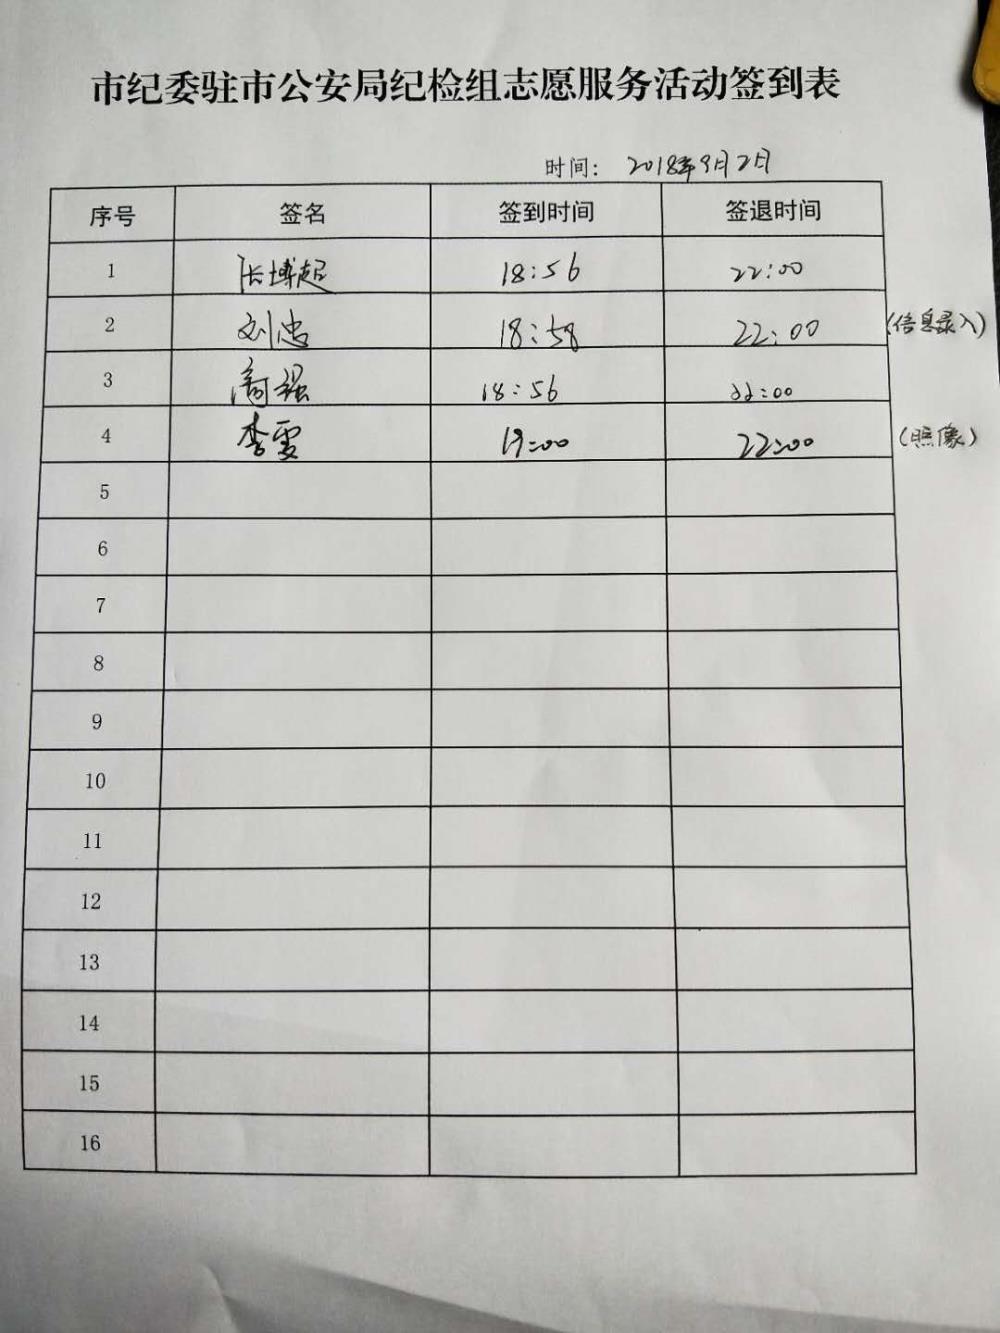 市纪委驻市公安局纪检组志愿服务活动签到表
时间： 2018年9月2日
序号 签名 签到时间 签退时间
1 张博超 18:56 22:00
2 刘忠 18:58 22:00 (信息录入)
3 高强 18:56 22:00
4 李雯 19:00 22:00 (照像)
5
6
7
8
9
10
11
12
13
14
15
16